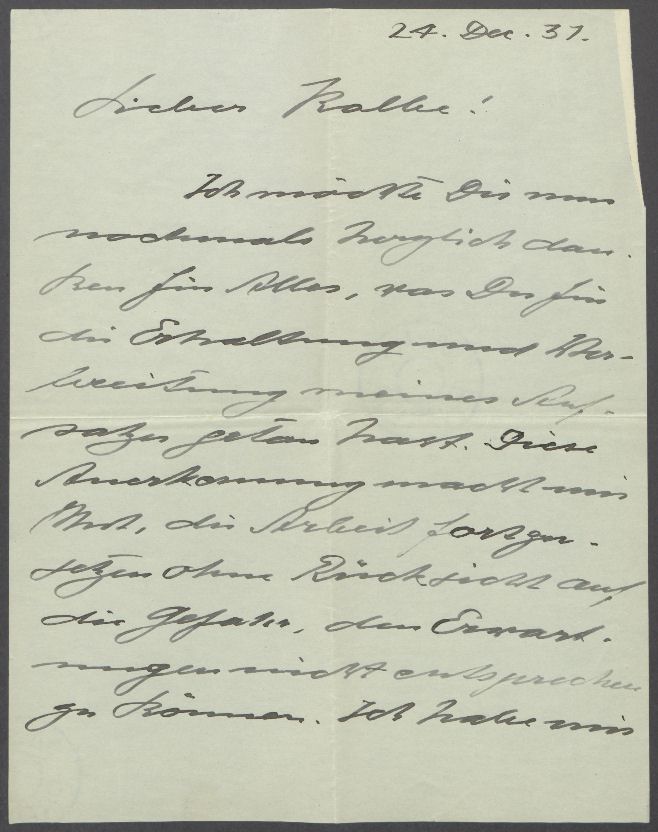 24. Dec. 37.
Lieber Kolbe!
Ich möchte Dir nun
nochmals herzlich dan-
ken für Alles, was Du für
die Erhaltung und Ver-
breitung meines Auf-
satzes getan hast. Diese
Anerkennung macht mir
Mut, die Arbeit fortzu-
setzen ohne Rücksicht auf
die Gefahr, den Erwart-
ungen nicht entsprechen
zu können. Ich habe mir